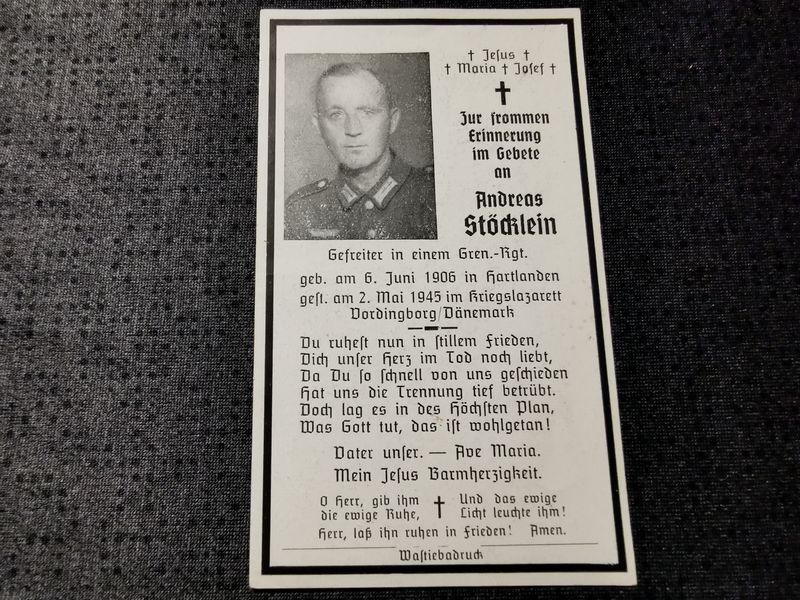 † Jesus †
† Maria † Josef †
Zur frommen
Erinnerung
im Gebete
an
Andreas
Stöcklein
Gefreiter in einem Gren.-Rgt.
geb. am 6. Juni 1906 in Hartlanden
gest. am 2. Mai 1945 im Kriegslazarett
Vordingborg/Dänemark
Du ruhest nun in stillem Frieden,
Dich unser Herz im Tod noch liebt,
Da Du so schnell von uns geschieden
Hat uns die Trennung tief betrübt.
Doch lag es in des Höchsten Plan,
Was Gott tut, das ist wohlgetan!
Vater unser. — Ave Maria.
Mein Jesus Barmherzigkeit.
O Herr, gib ihm
die ewige Ruhe,
†
Und das ewige
Licht leuchte ihm!
Herr, laß ihn ruhen in Frieden! Amen.
Wastiebadruck